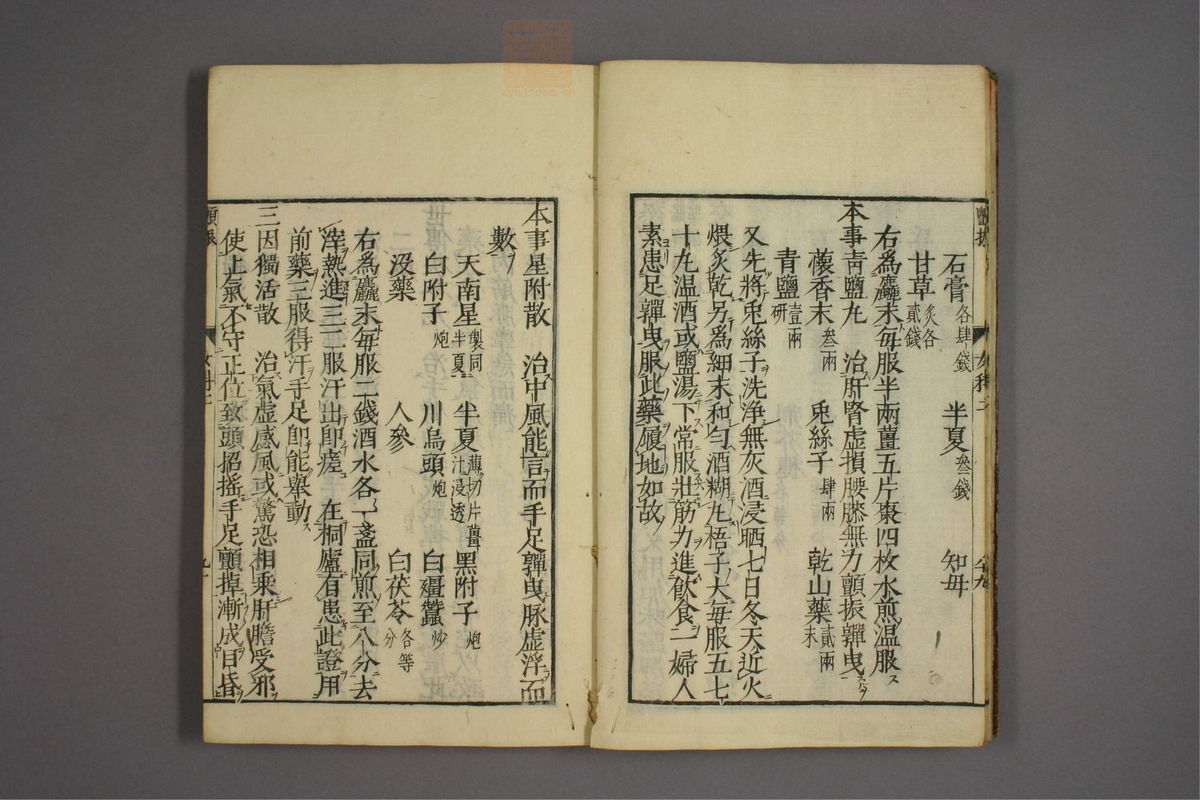 石膏各肆錢 半夏叄錢 知母
甘草炙各貳錢
右爲麤末每服半兩薑五片棗四枚水煎溫服ス
本事靑鹽丸 治肝腎虛損腰膝無力顫振嚲曳
蘹香末叄兩 兎絲子肆兩 乾山藥貳兩末
青鹽壹兩研
又先將兎絲子洗淨無灰酒浸晒七日冬天近火
煨炙乾另爲細末和勻酒糊丸梧子大每服五七
十丸溫酒或鹽湯下常服壯筋力進飮食一婦人
素患足嚲曳服此藥履地如故
本事星附散 治中風能言而手足嚲曳脉虛浮而
數
天南星製同半夏 半夏薄切片薑汁浸透 黑附子炮
白附子炮 川烏頭炮 白殭蠶炒
沒藥 人參 白茯苓各等分
右爲麤末每服二錢酒水各一盞同煎至八分去
滓熱進三二服汗出卽瘥 在桐廬有患此證用
前藥三服得汗手足卽能舉動ス
三因獨活散 治氣虛感風或驚恐相乘肝膽受邪
使上氣不守正位致頭招搖手足顫掉漸成目昏